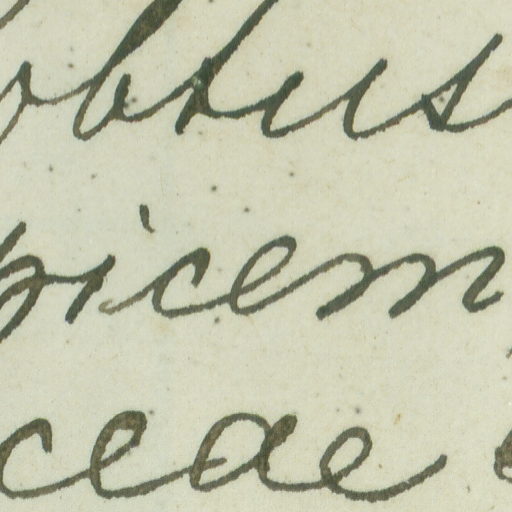 obtus
picem
ceae